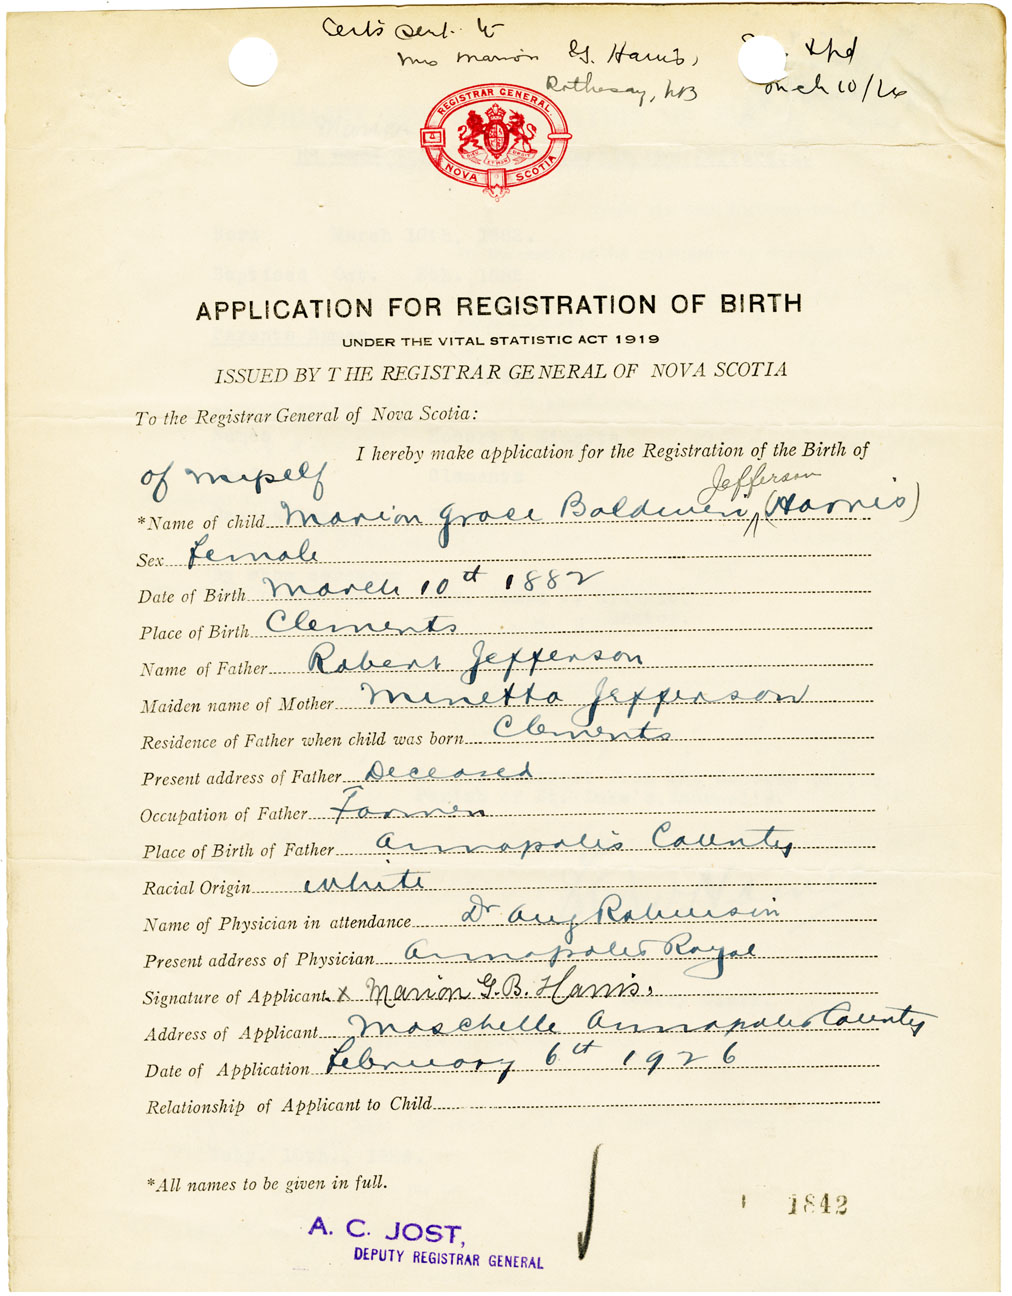 Certs sent to
Mrs Marion G. Harris,
Rothesay, NB
March 10/26
REGISTRAR GENERAL
NOVA SCOTIA
APPLICATION FOR REGISTRATION OF BIRTH
UNDER THE VITAL STATISTIC ACT 1919
ISSUED BY THE REGISTRAR GENERAL OF NOVA SCOTIA
To the Registrar General of Nova Scotia:
I hereby make application for the Registration of the Birth of
of myself
Jefferson
*Name of child Marion Grace Baldwin (Harris)
Sex Female
Date of Birth March 10th 1882
Place of Birth Clements
Name of Father Robert Jefferson
Maiden name of Mother Minetta Jefferson
Residence of Father when child was born Clements
Present address of Father Deceased
Occupation of Father Farmer
Place of Birth of Father Annapolis County
Racial Origin white
Name of Physician in attendance Dr Aug Robinson
Present address of Physician Annapolis Royal
Signature of Applicant x Marion G.B. Harris.
Address of Applicant Moschelle Annapolis County
Date of Application February 6th 1926
Relationship of Applicant to Child
*All names to be given in full.
1842
A. C. JOST,
DEPUTY REGISTRAR GENERAL